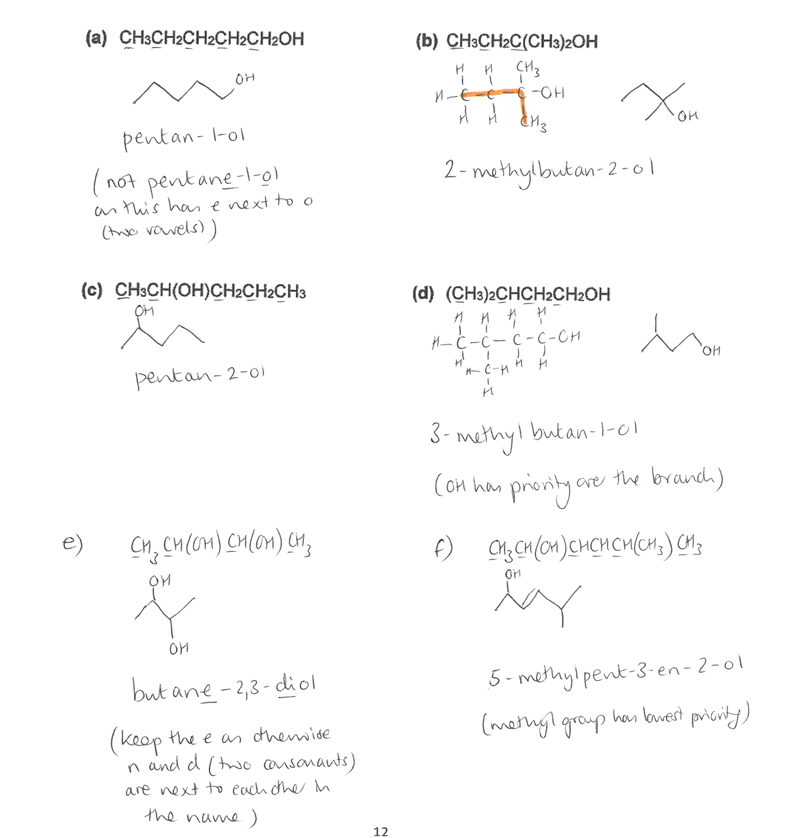 (a) CH3CH2CH2CH2CH2OH
OH
pentan-1-ol
(not pentane-1-ol
as this has e next to o
(two vowels))
(b) CH3CH2C(CH3)2OH
H H CH3
H-C-C-C-OH
H H CH3
OH
2-methylbutan-2-ol
(c) CH3CH(OH)CH2CH2CH3
OH
pentan-2-ol
(d) (CH3)2CHCH2CH2OH
H H H H
H-C-C-C-C-OH
H H-C-H H H
H
OH
3-methyl butan-1-ol
(OH has priority over the branch)
e) CH3CH(OH)CH(OH)CH3
OH
OH
butane-2,3-diol
(keep the e as otherwise
n and d (two consonants)
are next to each other in
the name)
f) CH3CH(OH)CHCHCH(CH3)CH3
OH
5-methylpent-3-en-2-ol
(methyl group has lowest priority)
12